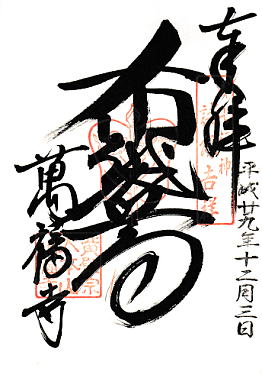 奉拝
平成廿九年十二月三日
布袋尊
萬福寺